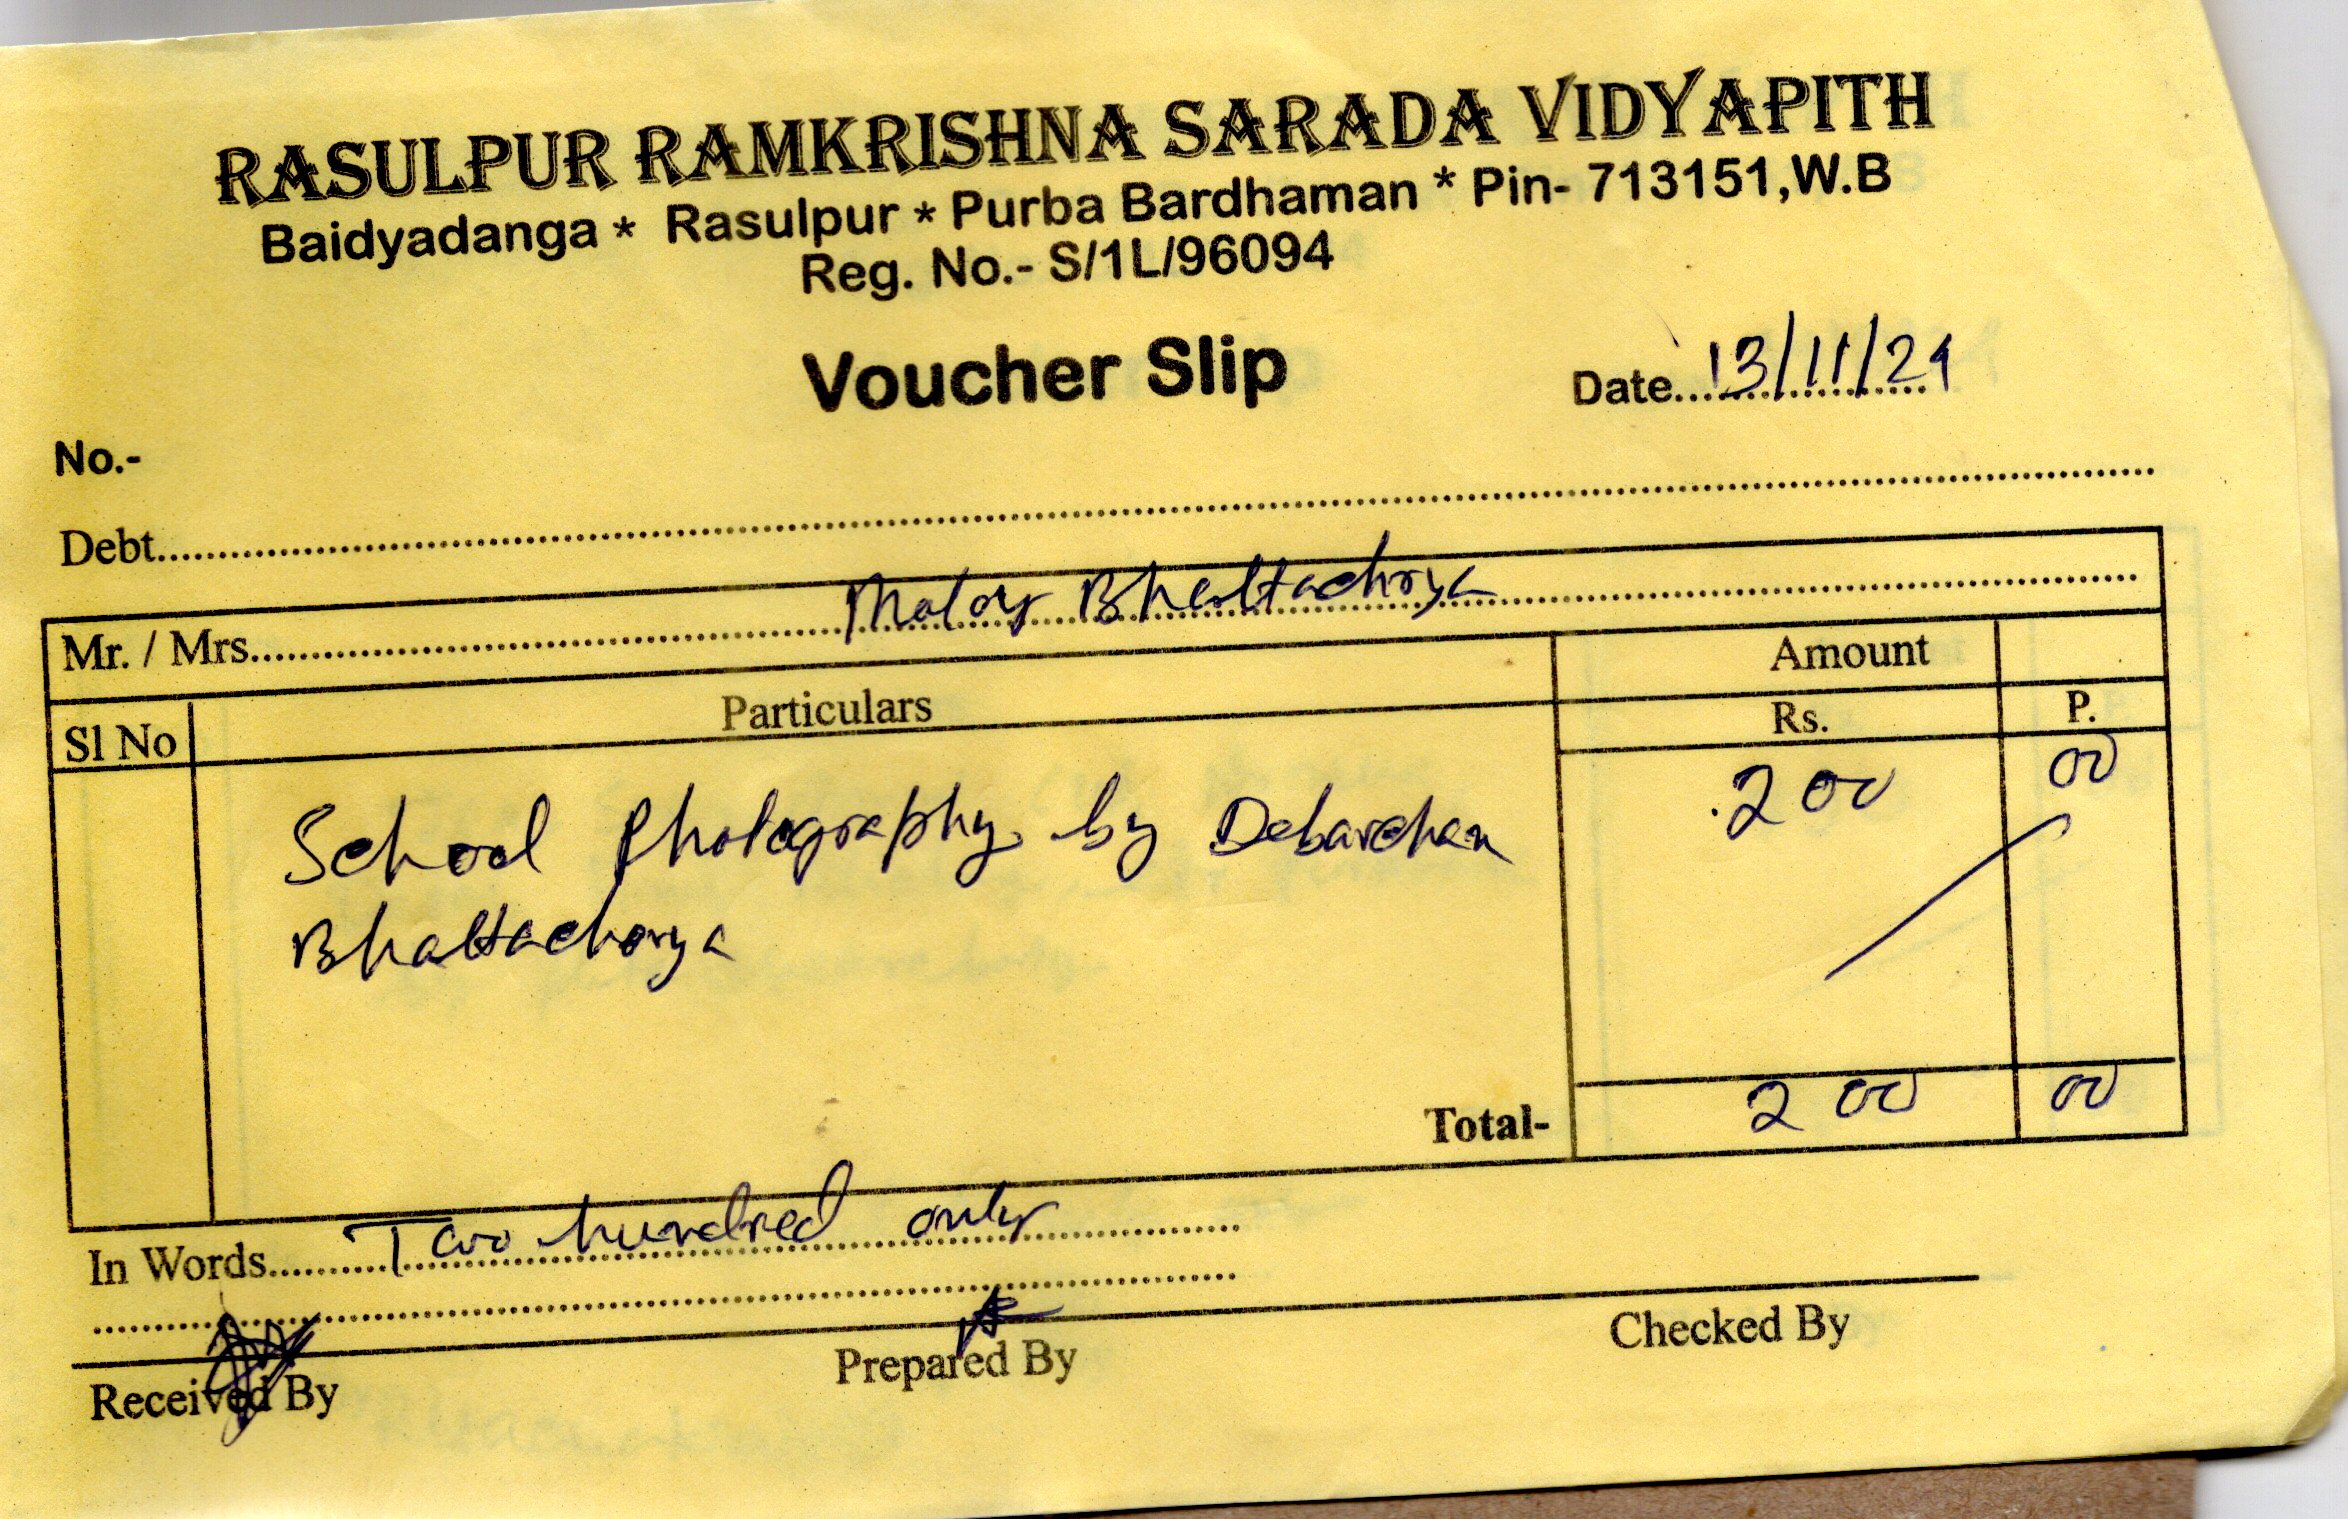 RASULPUR RAMKRISHNA SARADA VIDYAPITH
Baidyadanga * Rasulpur * Purba Bardhaman * Pin- 713151,W.B
Reg. No.- S/1L/96094
Voucher Slip
Date...13/11/21
No.-
Debt
Mr. / Mrs. Moloy Bhattachrya
Sl No Particulars Amount
Rs. P.
School Photography by Debarchan 200 00
Bhattachorya
Total- 200 00
In Words Two hundred only
Received By Prepared By Checked By